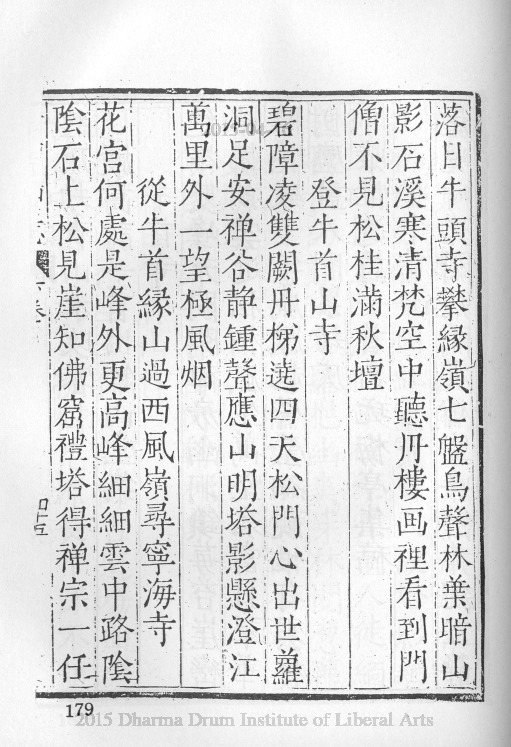 落日牛頭寺攀緣嶺七盤鳥聲林葉暗山
影石溪寒清梵空中聽丹樓画裡看到門
僧不見松桂滿秋壇
登牛首山寺
碧障凌雙闕丹梯遶四天松門心出世蘿
洞足安禅谷静鍾聲應山明塔影懸澄江
萬里外一望極風烟
從牛首緣山過西風嶺尋寧海寺
花宫何處是峰外更高峰細細雲中路陰
陰石上松見崖知佛窟禮塔得禅宗一任
179
2015 Dharma Drum Institute of Liberal Arts